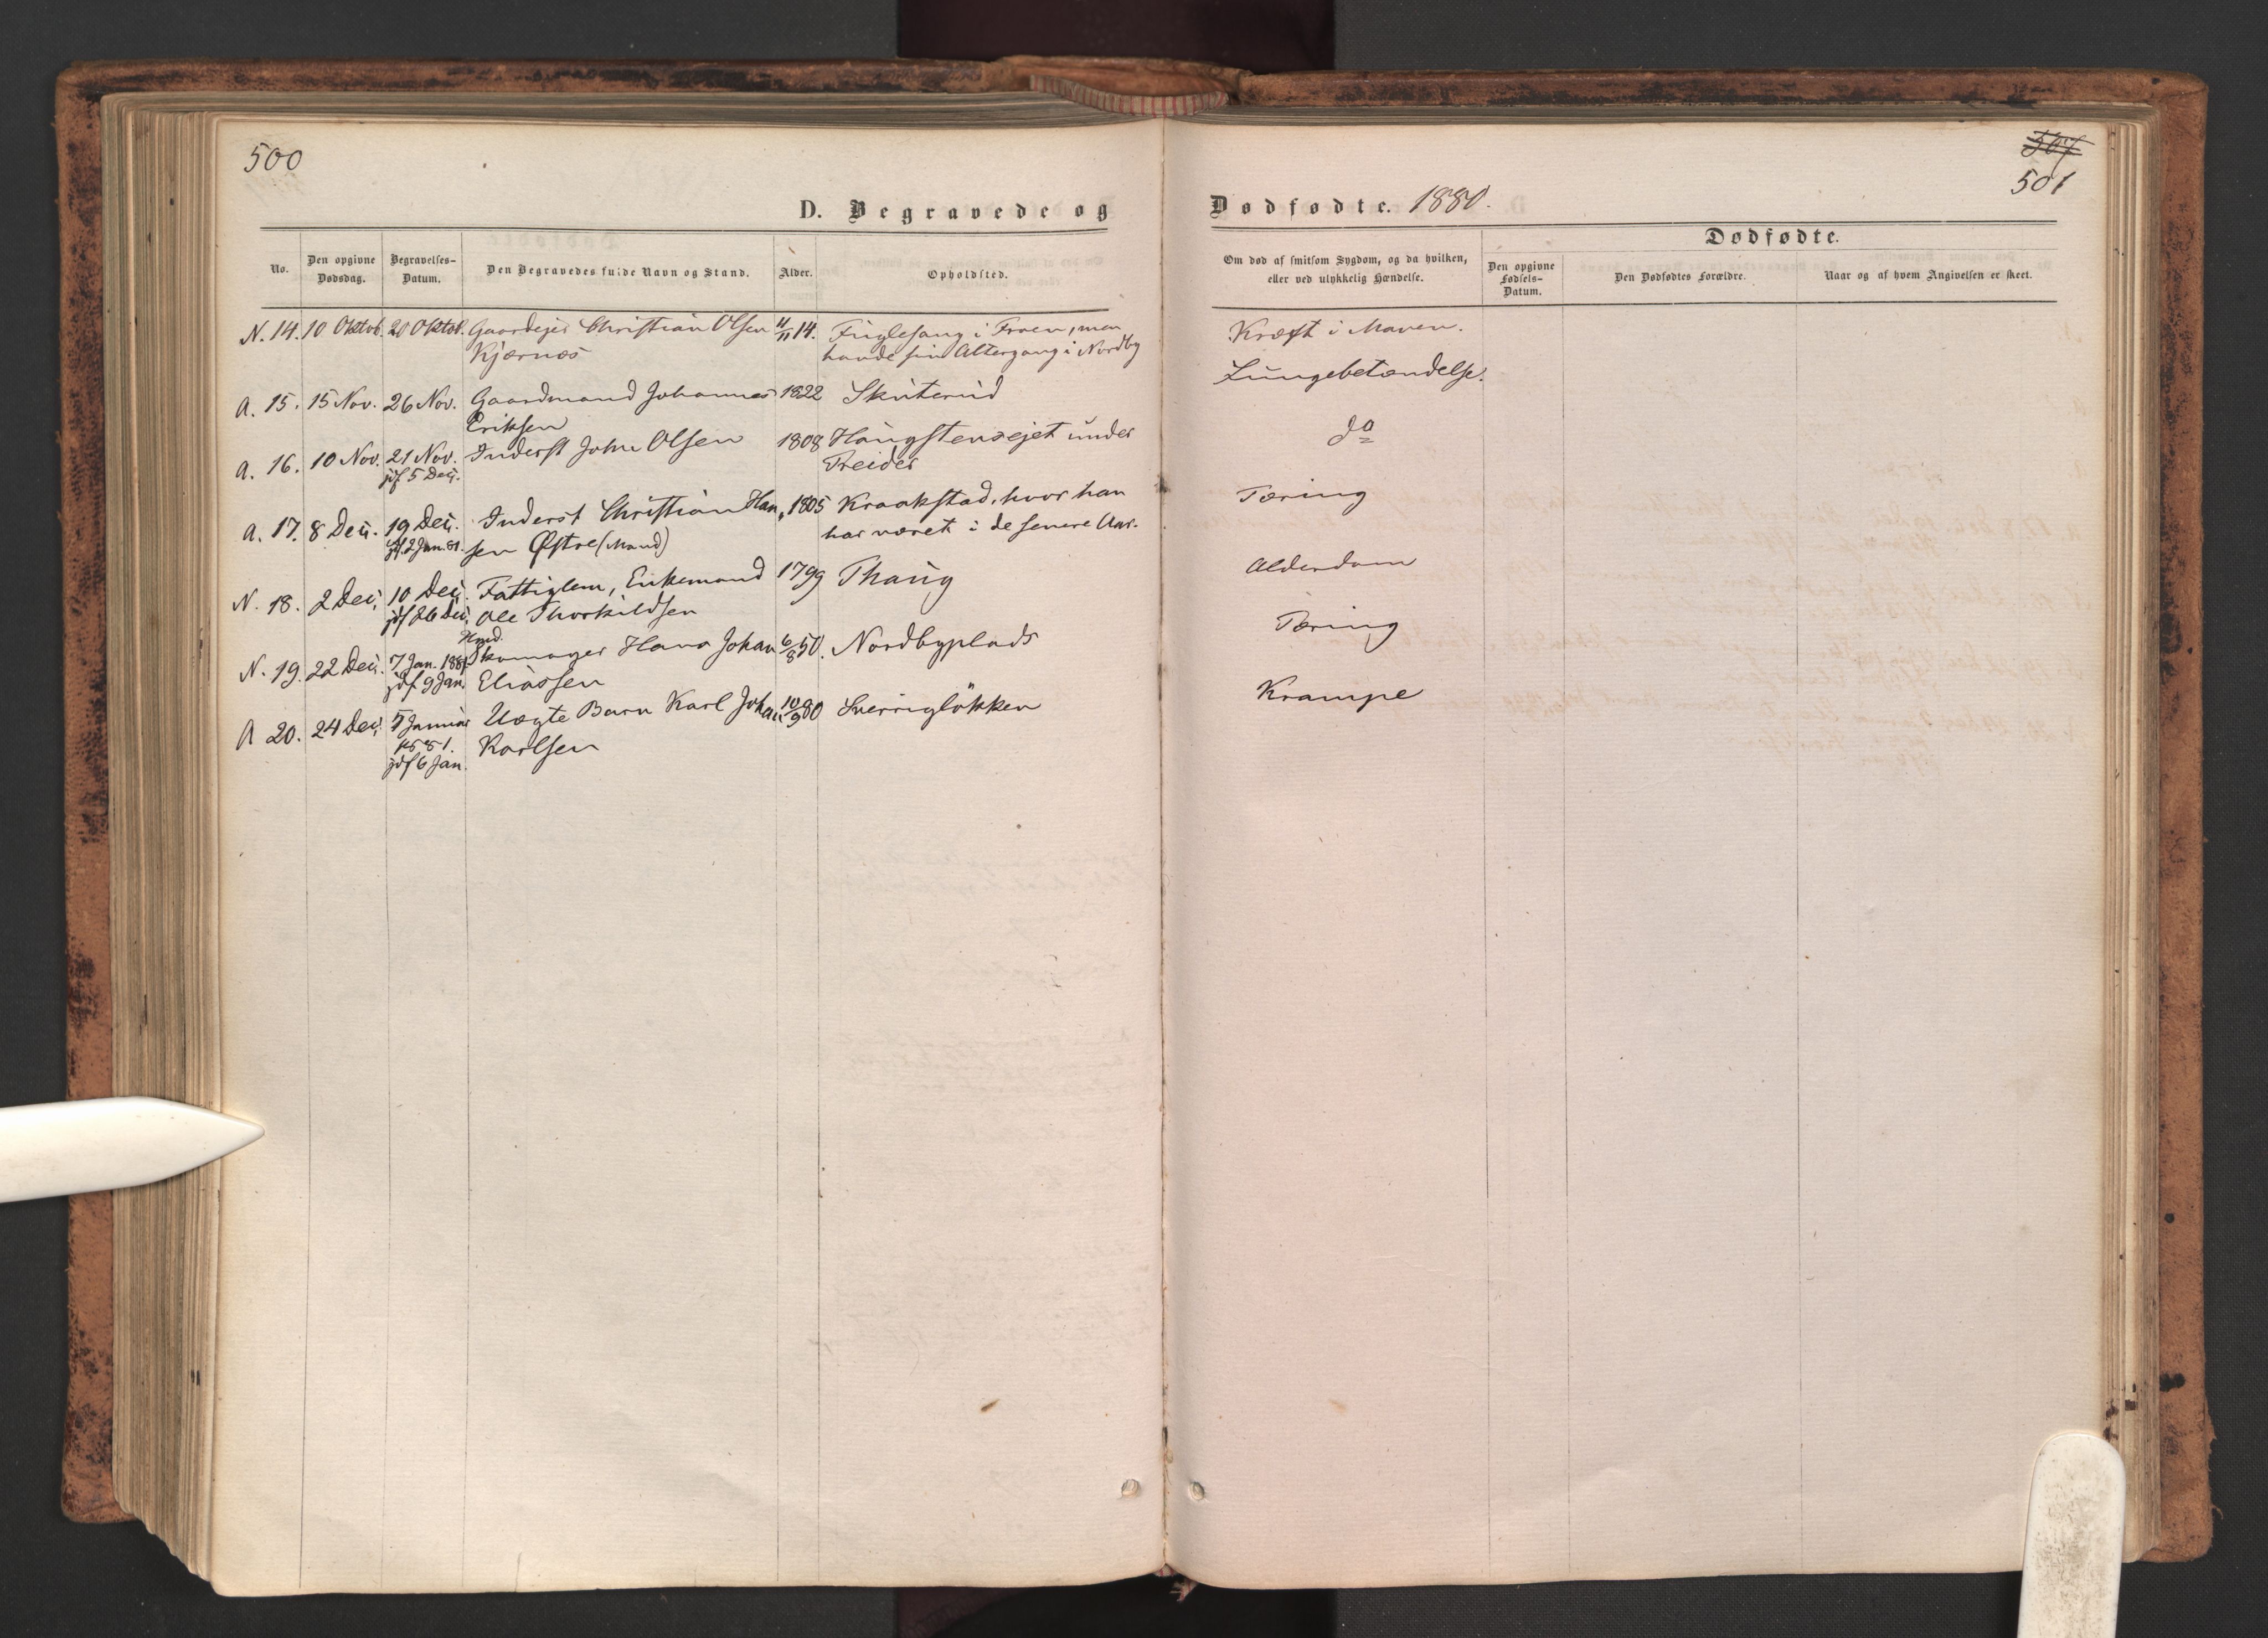 500
D. Begravede og
No.
Den opgivne Dødsdag.
Begravelses-Datum.
Den Begravedes fulde Navn og Stand.
Alder.
Opholdsted.
N. 14. 10 Oktob. 20 Oktob. Gaardejer Christian Olsen 11/11 14. Fuglesang i Froen, men
Kjærnæs havde sin Altergang i Nordby
A. 15. 15 Nov. 26 Nov. Gaardmand Johannes 1822 Skuterud
Eriksen
A. 16. 10 Nov. 21 Nov. Inderst John Olsen 1808 Haugsteneejet under
jdf 5 Dec. Treider
A. 17. 8 Dec. 19 Dec. Inderst Christian Han 1805 Kraakstad, hvor han
jdf. 2 Jan. 81. sen Østre (Mand) har været i de senere Aar.
N. 18. 2 Dec. 10 Dec. Fattiglem, Enkemand 1799 Thaug
jdf 26 Dec. Ole Thorkildsen
N. 19. 22 Dec. 7 Jan. 1881 Skomager Hans Johan 6/8 50. Nordbyplads
jdf 9 Jan. Eliassen
A 20. 24 Dec. 5 Januar Uægte Barn Karl Johan 10/9 80 Sverrigløkken
1881. Karlsen
jdf 6 Jan.
507
501
Dødfødte. 1880.
Om død af smitsom Sygdom, og da hvilken,
eller ved ulykkelig Hændelse.
Dødfødte.
Den opgivne Fødsels-Datum.
Den Dødfødtes Forældre.
Naar og af hvem Angivelsen er skeet.
Kræft i Maven.
Lungebetændelse.
do
Tæring
Alderdom
Tæring
Krampe